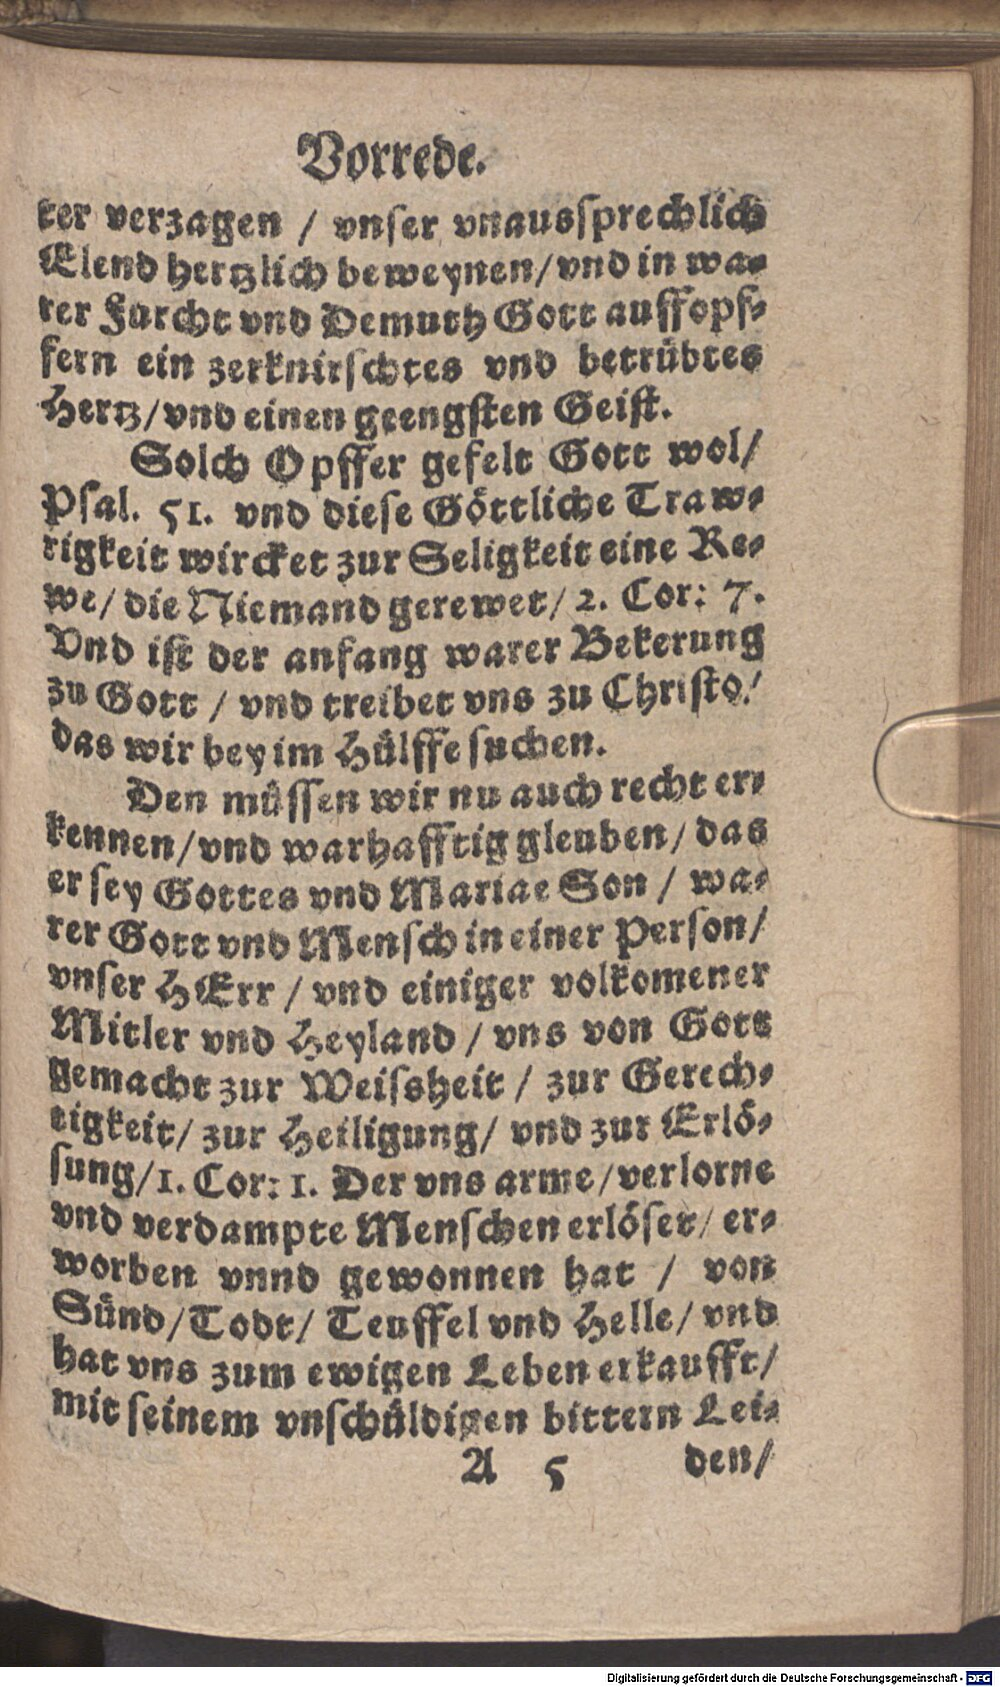 Vorrede.
ter verzagen / vnser vnaussprechlich
Elend hertzlich beweynen/ vnd in wa-
rer Furcht vnd Demuth Gott auffopf-
fern ein zerknirschtes vnd betrübtes
Hertz/ vnd einen geengsten Geist.
Solch Opffer gefelt Gott wol/
Psal. 51. vnd diese Göttliche Traw-
rigkeit wircket zur Seligkeit eine Re-
we/ die Niemand gerewet/ 2. Cor: 7.
Vnd ist der anfang warer Bekerung
zu Gott / vnd treibet vns zu Christo/
das wir bey im Hülffe suchen.
Den müssen wir nu auch recht er-
kennen/ vnd warhafftig gleuben/ das
er sey Gottes vnd Mariae Son / wa-
rer Gott vnd Mensch in einer Person/
vnser HErr / vnd einiger volkomener
Mitler vnd Heyland / vns von Gott
gemacht zur Weisheit / zur Gerech-
tigkeit/ zur Heiligung/ vnd zur Erlö-
sung/ 1. Cor: 1. Der vns arme/ verlorne
vnd verdampte Menschen erlöset/ er-
worben vnnd gewonnen hat / von
Sünd/ Todt/ Teuffel vnd Helle/ vnd
hat vns zum ewigen Leben erkaufft/
mit seinem vnschüldigen bittern Lei-
A 5 den/
Digitalisierung gefördert durch die Deutsche Forschungsgemeinschaft - DFG